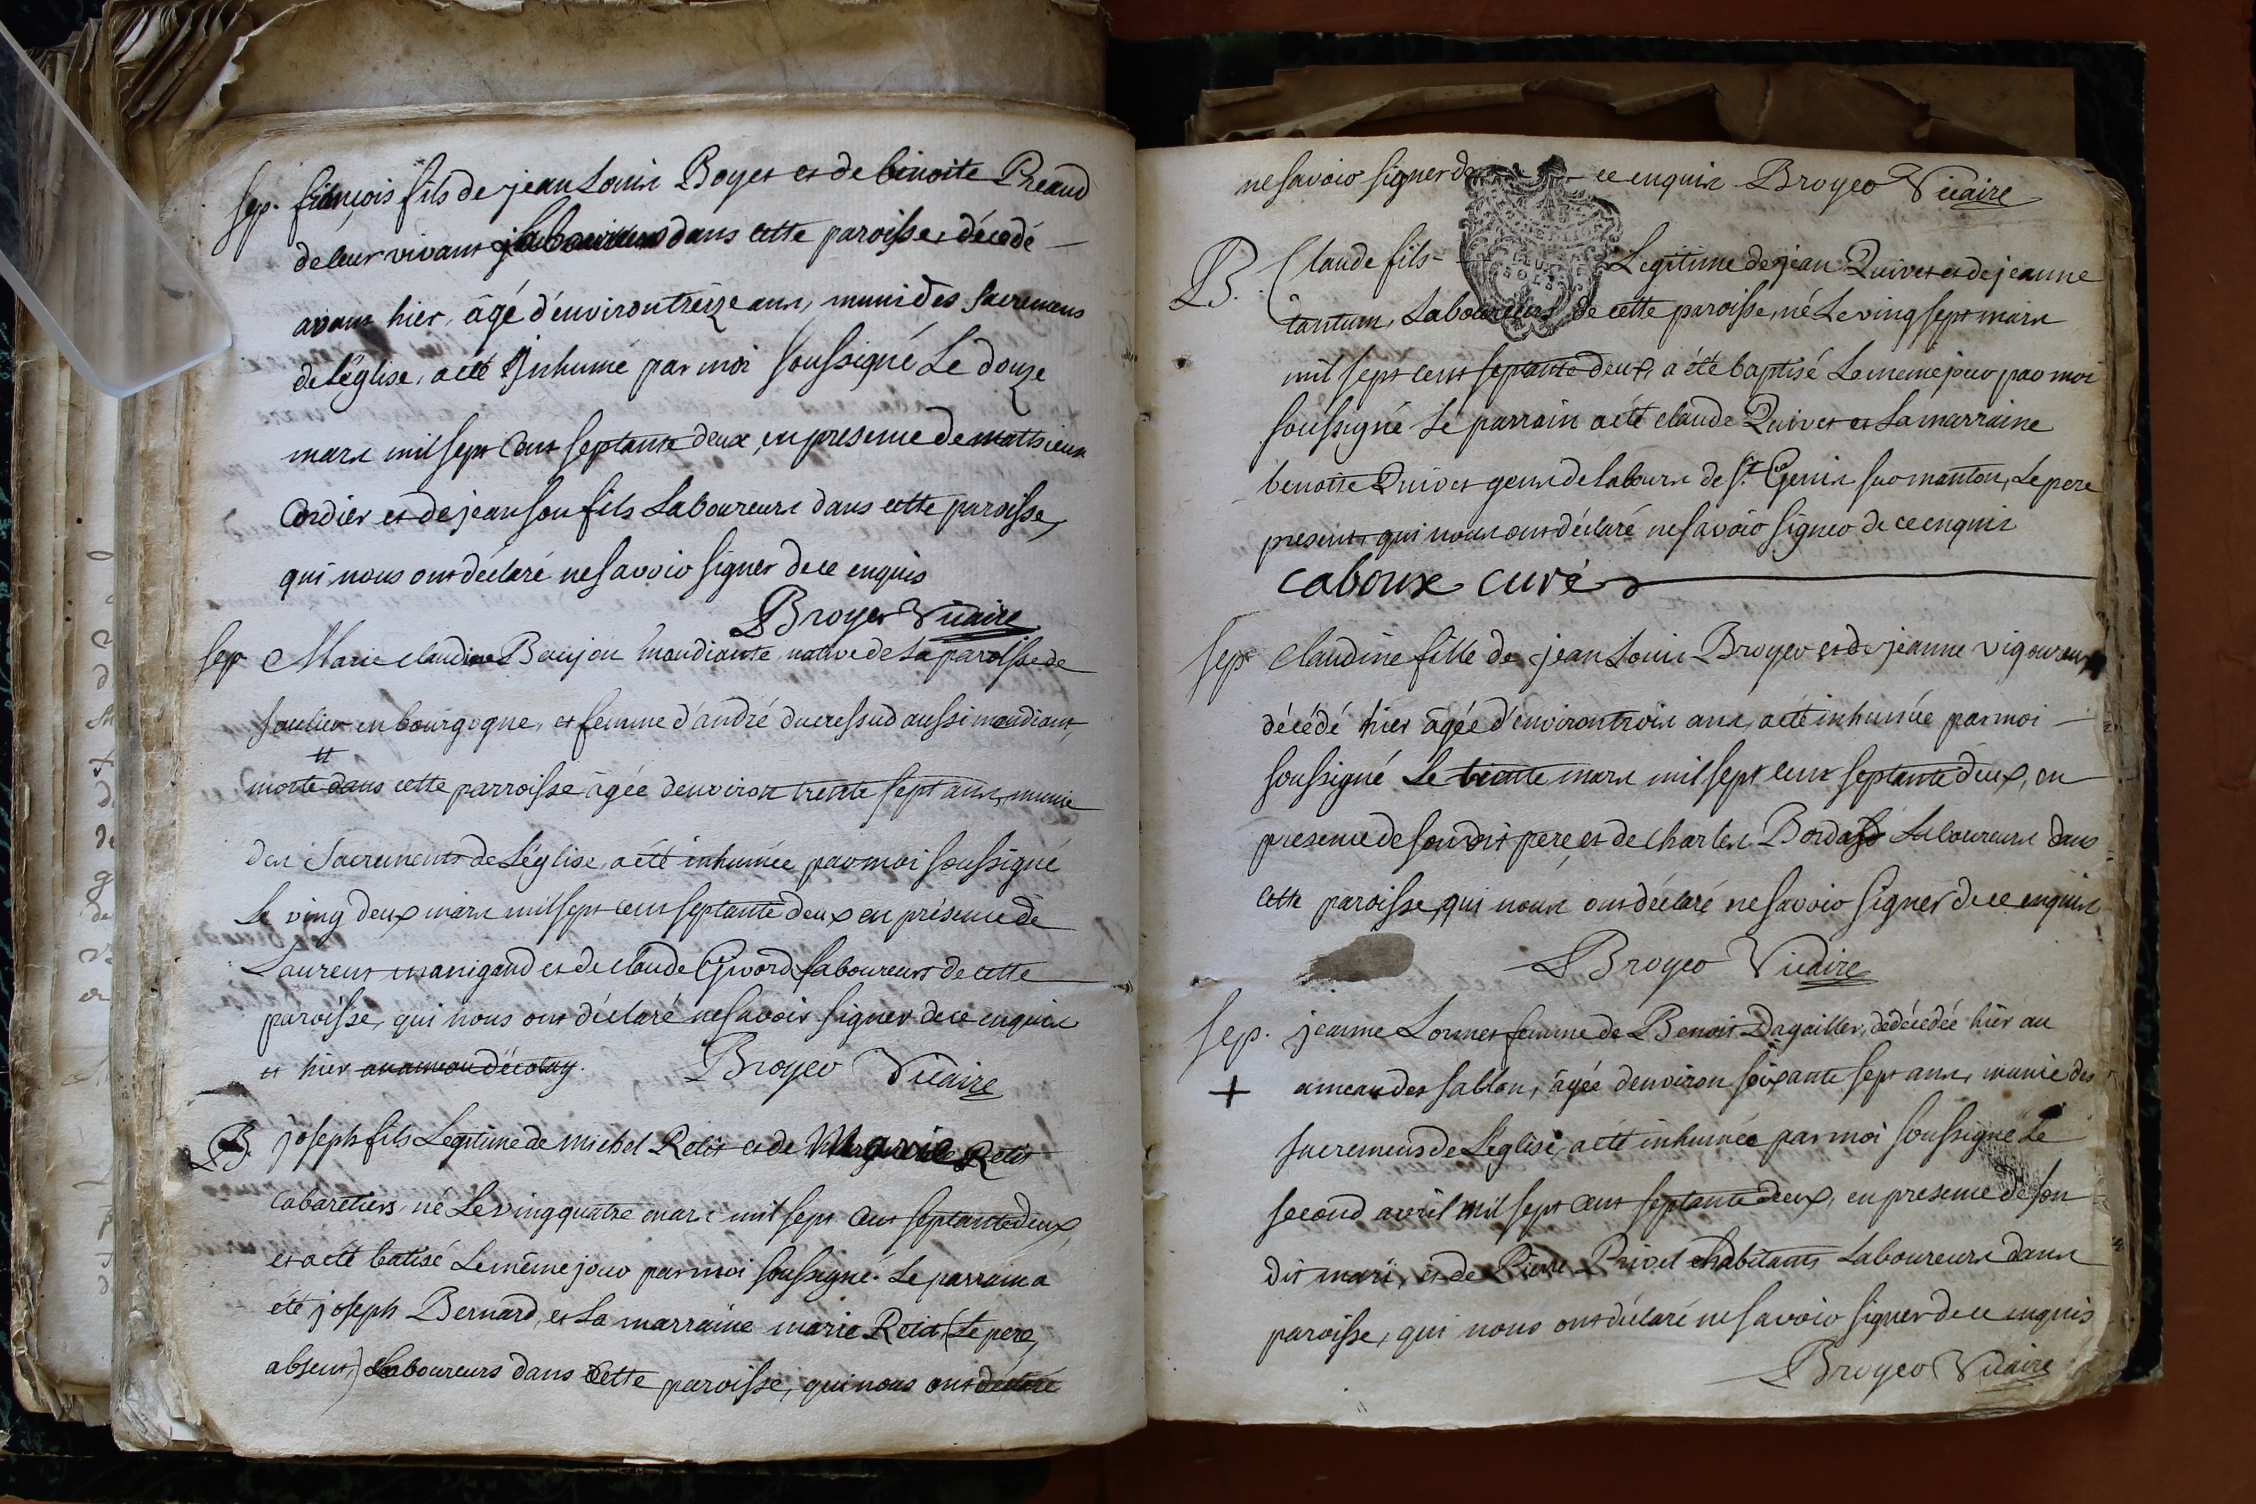 sep. françois fils de jean Louis Boyer et de benoite Preaud
de leur vivant laboureurs dans cette paroisse, décedé
avant hier, âgé d'environ treize ans, muni des sacremens
de l'église, a été inhumé par moi soussigné Le douze
mars mil sept cent septante deux, en presence de mathieux
Cordier et de jean son fils Laboureurs dans cette paroisse,
qui nous ont déclaré ne savoir signer de ce enquis
Broyer Vicaire
sep Marie claudine Boujon mandiante native de la paroisse de
saulieu en bourgogne, et femme d'andré ducressud aussi mandiant,
morte dans cette parroisse âgée d'environ trente sept ans, munie
des Sacrements de L'église, a été inhumée par moi soussigné
Le ving deux mars mil sept cent septante deux en présence de
Laurent manigand et de claude Givord laboureurs de cette
paroisse, qui nous ont déclaré ne savoir signer de ce enquis
et hier Broyer Vicaire
B. joseph fils Legitime de michel Relit et de Marie Relit
Cabaretiers, né Le ving quatre mars mil sept cent septante deux,
et a été batisé Le même jour par moi soussigné. Le parrain a
été joseph Bernard, et La marraine marie Relit, (Le pere
absent,) Laboureurs dans cette paroisse, qui nous ont déclaré
ne savoir signer de ce enquis Broyer Vicaire
B. Claude fils Legitime de jean Quivet et de jeanne
tantum, Laboureurs de cette paroisse, né Le ving sept mars
mil sept cent septante deux, a été baptisé Le meme jour par moi
soussigné Le parrain a été claude Quivet et La marraine
benoite Quivet gens de labours de st. Genis sur manton, Le pere
present, qui nous ont déclaré ne savoir signer de ce enquis
caboux curé
sep Claudine fille de jean Louis Broyer et de jeanne vigoureux
décédé hier âgée d'environ trois ans, a été inhumée par moi
soussigné Le trente mars mil sept cent septante deux, en
presence de son dit pere, et de charles Bordas Laboureurs dans
cette paroisse, qui nous ont déclaré ne savoir signer de ce enquis
Broyer Vicaire
sep. jeanne Lornet femme de Benoit Dagallier, dédécedée hier au
+ ameau des sablon, âgée d'environ soixante sept ans, munie des
sacremens de L'eglise, a été inhumée par moi soussigné Le
second avril mil sept cent septante deux, en presence de son
dit mari, et de Pierre Privel habitants Laboureurs dans
paroisse, qui nous ont déclaré ne savoir signer de ce enquis
Broyer Vicaire